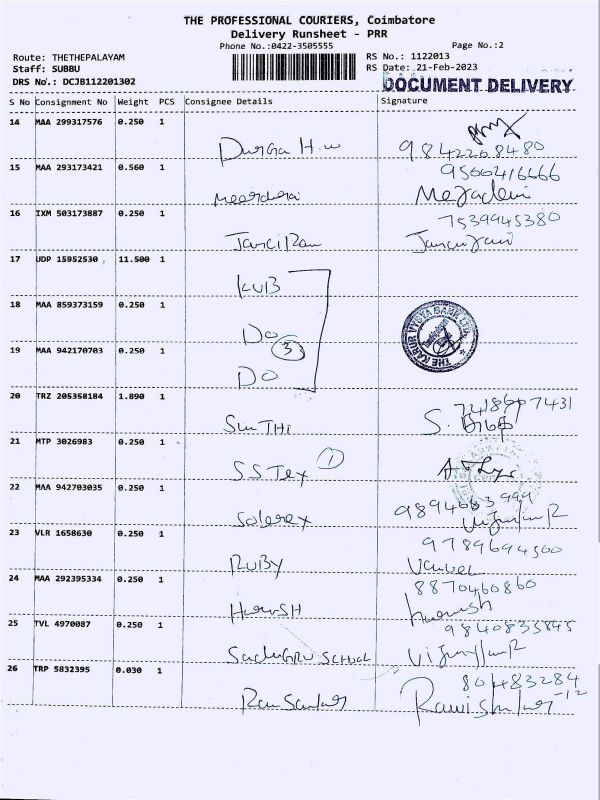 THE PROFESSIONAL COURIERS, Coimbatore
Delivery Runsheet - PRR
Phone No.:0422-3505555 Page No.:2
Route: THETHEPALAYAM RS No.: 1122013
Staff: SUBBU RS Date: 21-Feb-2023
DRS No.: DCJB112201302 DOCUMENT DELIVERY
S No Consignment No Weight PCS Consignee Details Signature
14 MAA 299317576 0.250 1
Durga H.w 9842208480
15 MAA 293173421 0.560 1 9500416666
16 IXM 503173887 0.250 1 7539945380
17 UDP 15952530 11.500 1
KVB
18 MAA 859373159 0.250 1
Do
3
THE KARUR VYSYA BANK LTD
19 MAA 942170703 0.250 1
Do
20 TRZ 205358184 1.890 1
S.
21 MTP 3026983 0.250 1
SS Tex 1
22 MAA 942703035 0.250 1
Solorex
23 VLR 1658630 0.250 1 9789694500
RUBY
24 MAA 292395334 0.250 1 8870460860
HariSH harish
25 TVL 4970087 0.250 1 9840835845
SadhGRU SCHOOL
26 TRP 5832395 0.030 1 80483284
-12
Ravi Sankar Ravishankar